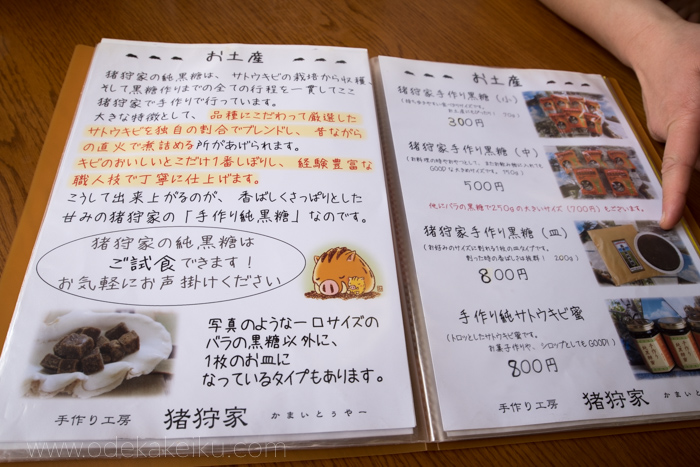 お土産
猪狩家の純黒糖は、サトウキビの栽培から収穫、
そして黒糖作りまでの全ての行程を一貫してここ
猪狩家で手作りで行っています。
大きな特徴として、品種にこだわって厳選した
サトウキビを独自の割合でブレンドし、昔ながら
の直火で煮詰める所があげられます。
キビのおいしいとこだけ1番しぼりし、経験豊富な
職人技で丁寧に仕上げます。
こうして出来上がるのが、香ばしくさっぱりとした
甘みの猪狩家の「手作り純黒糖」なのです。
猪狩家の純黒糖は
ご試食できます！
お気軽にお声掛けください
写真のような一口サイズの
バラの黒糖以外に、
1枚のお皿に
なっているタイプもあります。
手作り工房 猪狩家 かまいとぅやー
お土産
猪狩家手作り黒糖（小）
300円
猪狩家手作り黒糖（中）
500円
他にバラの黒糖で250gの大きいサイズ（700円）もございます。
猪狩家手作り黒糖（皿）
（お好みのサイズに割れる1枚の皿タイプです。
割った時の香ばしさは抜群！ 200g）
800円
手作り純サトウキビ蜜
（トロッとしたサトウキビ蜜です。
お菓子作りや、シロップとしてもGOOD!）
800円
手作り工房 猪狩家 かまいとぅやー
www.odekakeiku.com